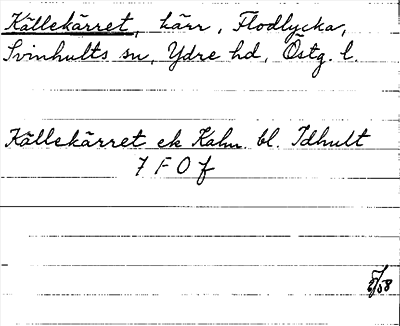 Källekärret, kärr, Flodlycka,
Svinhults sn, Ydre hd, Östg. l.
Källekärret ek Kahn. bl. Idhult
7 F 0 f